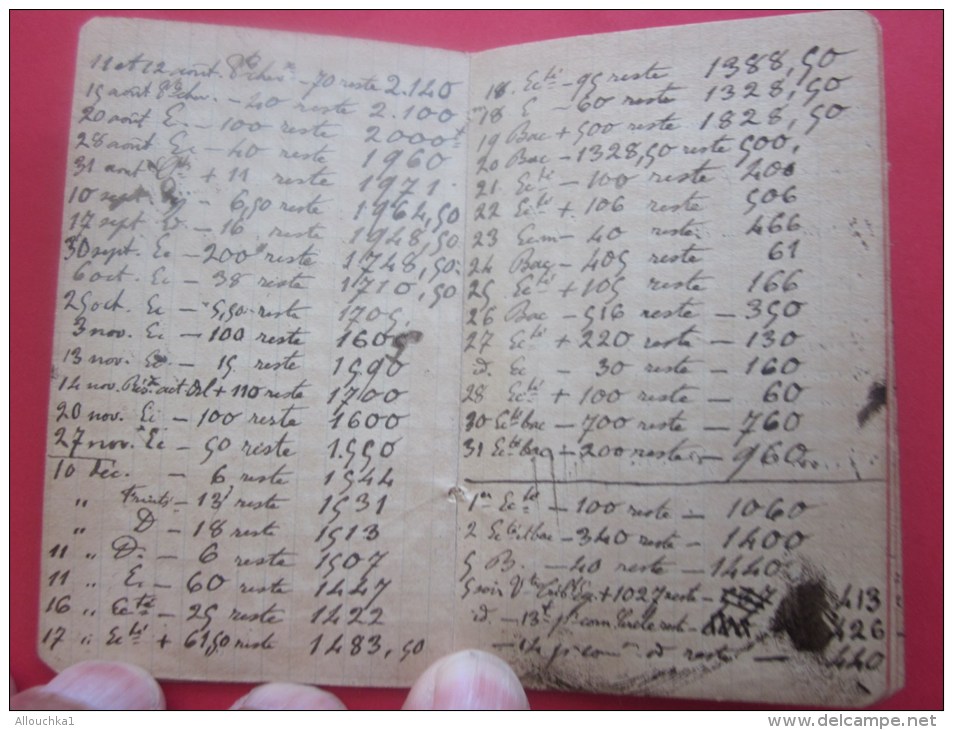 11 et 12 août - 70 reste 2.140
15 août - 40 reste 2.100
20 août E. - 100 reste 2000
28 août Ec - 40 reste 1960
31 août + 11 reste 1971.
10 sept. - 6,50 reste 1964,50
17 sept. - 16 reste 1948,50
30 sept. Ec - 200 reste 1748,50.
6 oct. Ec - 38 reste 1710,50
25 oct. Ec - 5,50 reste 1705.
3 nov. Ec - 100 reste 1605
13 nov. Ec. - 15 reste 1590
14 nov. + 110 reste 1700
20 nov. Ec - 100 reste 1600
27 nov. Ec - 50 reste 1550
10 Déc. - 6 reste 1544
" - 13 reste 1531
" D - 18 reste 1513
11 " D. - 6 reste 1507
11 " E. - 60 reste 1447
16 " Ecté - 25 reste 1422
17 " Ecté + 61,50 reste 1483,50
18. Ecté - 95 reste 1388,50
18 E - 60 reste 1328,50
19 Bac + 500 reste 1828,50
20 Bac - 1328,50 reste 500.
21 Ecté - 100 reste 400
22 Ecté + 106 reste 506
23 Ecm - 40 reste 466
24 Bac - 405 reste 61
25 Ecté + 105 reste 166
26 Bac - 516 reste - 350
27 Ecté + 220 reste - 130
id. Ec - 30 reste - 160
28 Ecté + 100 - 60
30 Ecté bac - 700 reste - 760
31 Ecté bac - 200 reste - 960
1er Ecté - 100 reste - 1060
2 Ecté bac - 340 reste - 1400
5 B. - 40 reste - 1440
5 soir + 1027 reste - 413
id. - 13 426 -
- 14 id reste - 440
Allouchka1
http://www.delcampe.net